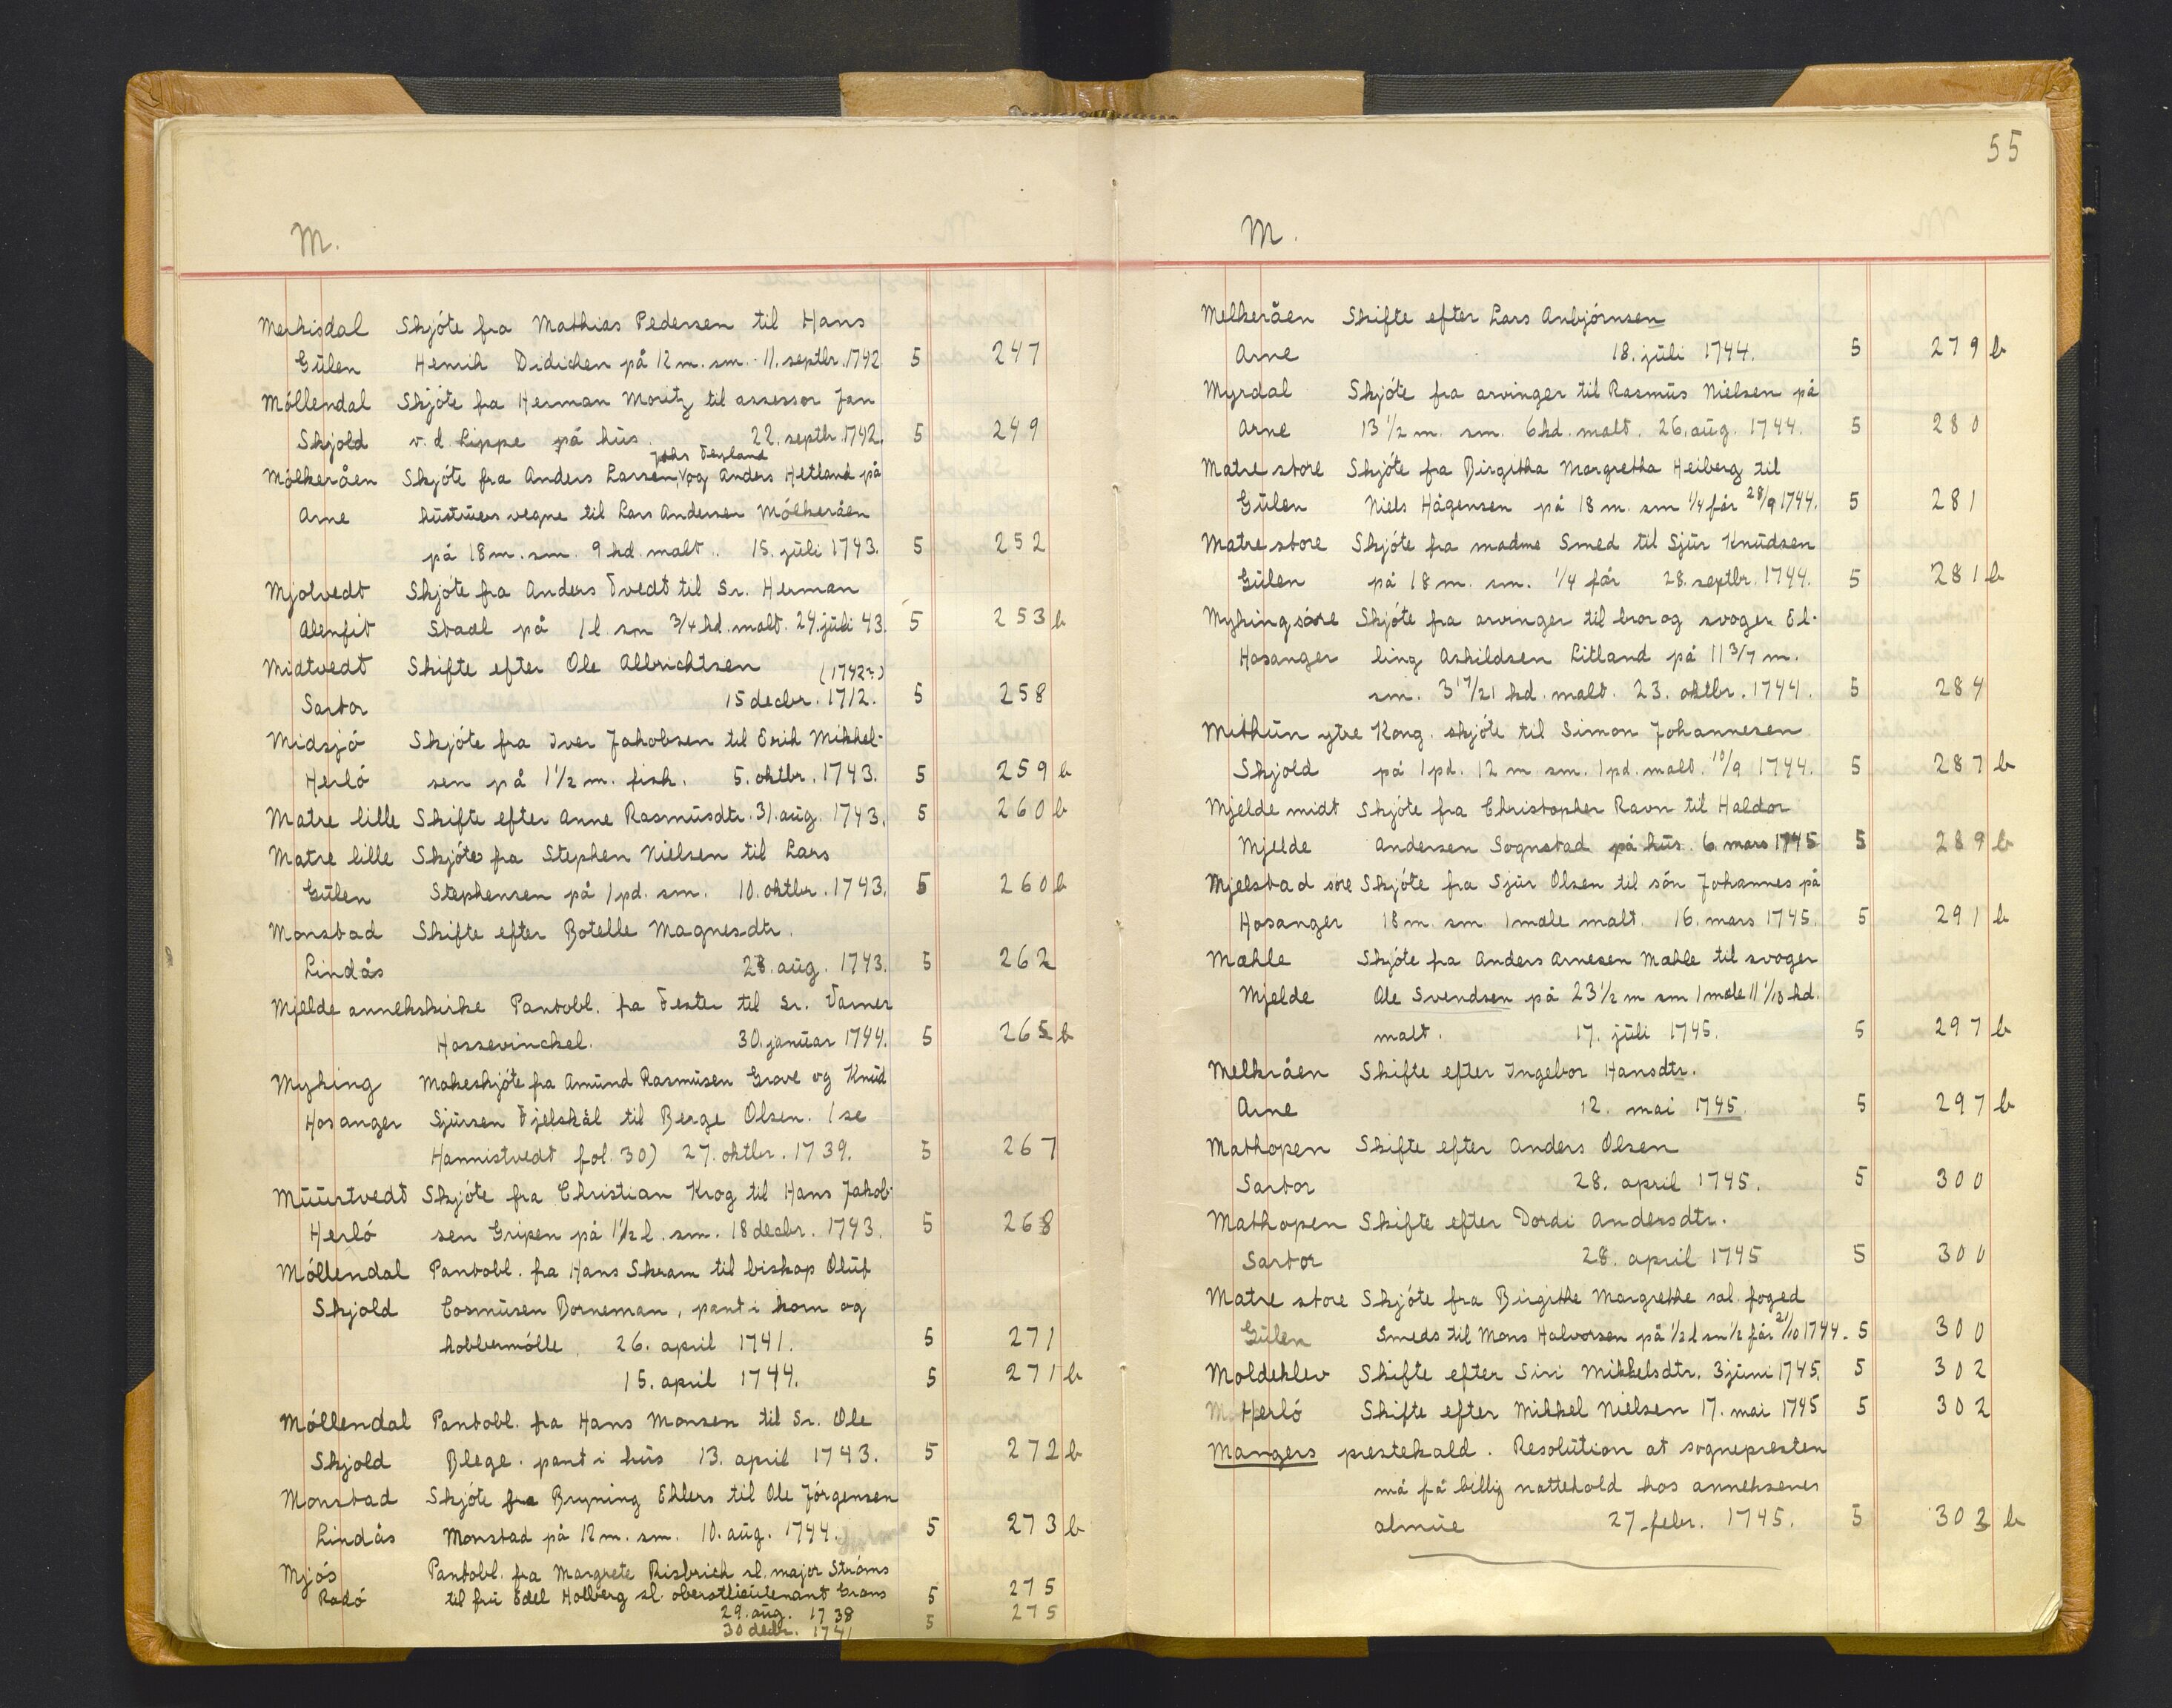 M.
Merkisdal Skjóte fra Mathias Pedersen til Hans
Gülen Henrik Didichen på 12 m. sm. 11. septbr. 1742 5 247
Móllendal Skjóte fra Herman Moritz til assessor Jan
Skjold v. d. Lippe på hüs. 22. septbr. 1742. 5 249
Johs Teyland
Mólkeråen Skjóte fra Anders Larsen, Vog Anders Hetland på
Arne hüstrüers vegne til Lars Andersen Mólkeråen
på 18 m. sm. 9 kd. malt. 15. jüli 1743. 5 252
Mjolvedt Skjóte fra Anders Tvedt til Sr. Herman
Alenfit Stadl på 1 l sm 3/4 kd. malt. 24. jüli 43. 5 253 b
Midtvedt Skifte efter Ole Albrichtsen (1742?)
Sartor 15 decbr. 1712. 5 258
Midsjó Skjóte fra Iver Jakobsen til Erik Mikkel-
Herló sen på 1 1/2 m. fisk. 5. oktbr. 1743. 5 259 b
Matre lille Skifte efter Anne Rasmüsdtr. 31. aüg. 1743. 5 260 b
Matre lille Skjóte fra Stephen Nielsen til Lars
Gülen Stephensen på 1 pd. sm. 10. oktbr. 1743. 5 260 b
Monstad Skifte efter Botelle Magnesdtr.
Lindås 28. aüg. 1743. 5 262
Mjelde annekskirke Pantobl. fra Fester til Sr. Varner
Hassevinckel. 30. janüar 1744. 5 265 b
Myking Makeskjóte fra Amünd Rasmüsen Grove og Knüd
Hosanger Sjürsen Fjelskål til Berge Olsen. (se
Hannistvedt fol. 30) 27. oktbr. 1739. 5 267
Müürtvedt Skjóte fra Christian Krog til Hans Jakob-
Herló sen Gripen på 1 1/2 l. sm. 18 decbr. 1743. 5 268
Móllendal Pantobl. fra Hans Skram til biskop Olüf
Skjold Cosmüsen Borneman, pant i korn og
kobbermólle. 26. april 1741. 5 271
15. april 1744. 5 271 b
Móllendal Pantobl. fra Hans Monsen til Sr. Ole
Skjold Blege. pant i hüs 13. april 1743. 5 272 b
Monstad Skjóte fra Bryning Ehlers til Ole Jórgensen
Lindås Monstad på 12 m. sm. 10. aüg. 1744. 5 273 b
Mjós Pantobl. fra Margrete Risbrich sl. major Stróms
Radó til frü Edel Holberg sl. oberstlieütenant Grans 5 275
29. aüg. 1738 5 275
30 decbr. 1741
55
M.
Melkeråen Skifte efter Lars Anbjórnsen
Arne 18. jüli 1744. 5 279 b
Myrdal Skjóte fra arvinger til Rasmüs Nielsen på
Arne 13 1/2 m. sm. 6 kd. malt. 26. aüg. 1744. 5 280
Matre store Skjóte fra Birgitha Margretha Heiberg til
Gülen Niels Hågensen på 18 m. sm 1/4 får 28/9 1744. 5 281
Matre store Skjóte fra madme Smed til Sjür Knüdsen
Gülen på 18 m. sm. 1/4 får 28. septbr. 1744. 5 281 b
Myking sóre Skjóte fra arvinger til bror og svoger El-
Hosanger ling Askildsen Litland på 11 3/7 m.
sm. 3 17/21 kd. malt. 23. oktbr. 1744. 5 284
Mithün ytre Kong. skjóte til Simon Johannesen
Skjold på 1 pd. 12 m sm. 1 pd. malt. 10/9 1744. 5 287 b
Mjelde midt Skjóte fra Christopher Ravn til Haldor
Mjelde Andersen Sognstad på hüs. 6. mars 1745 5 289 b
Mjelstad sóre Skjóte fra Sjür Olsen til són Johannes på
Hosanger 18 m. sm. 1 mæle malt. 16. mars 1745. 5 291 b
Mæhle Skjóte fra Anders Arnesen Mæhle til svoger
Mjelde Ole Svendsen på 23 1/2 m sm 1 mæle 11 1/10 kd.
malt. 17. jüli 1745. 5 297 b
Melkråen Skifte efter Ingebor Hansdtr.
Arne 12. mai 1745. 5 297 b
Mathopen Skifte efter Anders Olsen
Sartor 28. april 1745. 5 300
Mathopen Skifte efter Dordi Andersdtr.
Sartor 28. april 1745 5 300
Matre store Skjóte fra Birgithe Margrethe sal. foged
Gülen Smeds til Mons Halvorsen på 1/2 l sm 1/2 får 21/10 1744. 5 300
Moldeklev Skifte efter Siri Mikkelsdtr. 3 jüni 1745. 5 302
M. Herló Skifte efter Mikkel Nielsen 17. mai 1745 5 302
Mangers prestekald. Resolütion at sognepresten
må få billig nattehold hos anneksenes
almüe 27. febr. 1745. 5 303 b